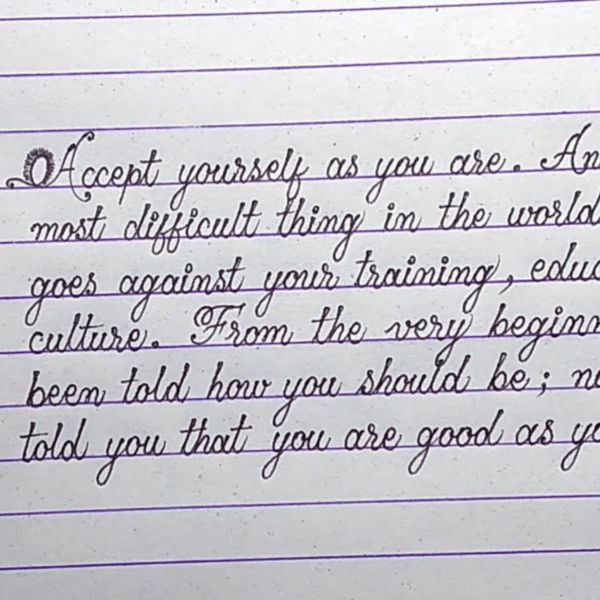 Accept yourself as you are. An
most difficult thing in the world
goes against your training, educ
culture. From the very beginn
been told how you should be; n
told you that you are good as yo